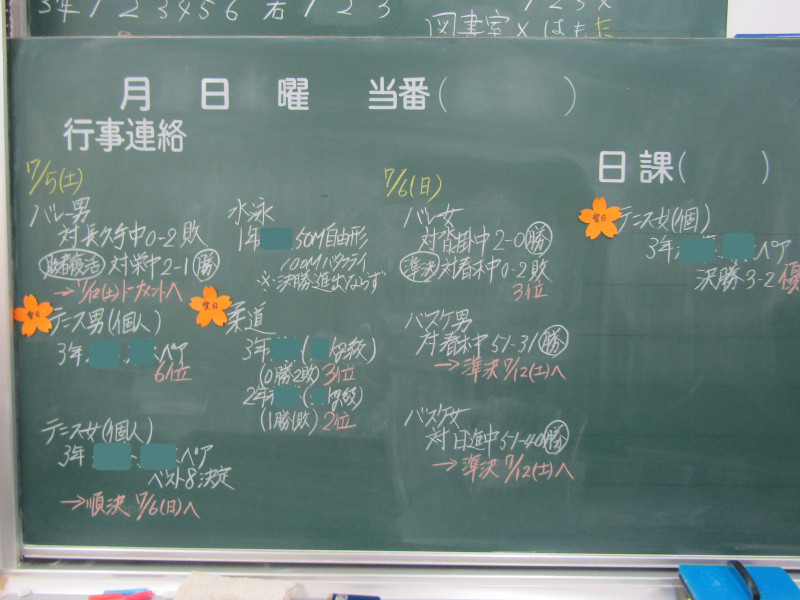 3年 1 2 3 4 5 6 若 1 2 3
図書室×はもだ
月 日 曜 当番( )
行事連絡
日課( )
7/5(土)
バレー男
対長久手中0-2敗
敗者復活 対栄中2-1勝
→7/12(土)トーナメントへ
テニス男(個人)
3年 ペア
6位
テニス女(個人)
3年 ペア
ベスト8決定
→順決 7/6(日)へ
水泳
1年 50M自由形
100Mバタフライ
※決勝進出ならず
柔道
3年 ( kg級)
(0勝2敗) 3位
2年 ( kg級)
(1勝1敗) 2位
7/6(日)
バレー女
対沓掛中2-0勝
準決 対春木中0-2敗
3位
バスケ男
対春木中51-31勝
→準決 7/12(土)へ
バスケ女
対日進中51-40勝
→準決 7/12(土)へ
テニス女(個)
3年 ペア
決勝3-2優